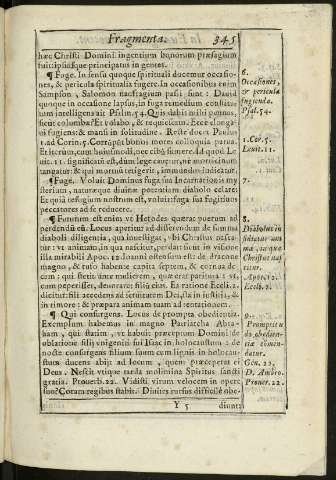 Fragmenta. 345
hæc Christi Domini ingentium bonorum præsagium
fuit ipsiusque principatus in gentes.
¶ Fuge. In sensu quoque spirituali ducemur occasio-
nes, & pericula spiritualia fugere. In occasionibus enim
Sampson, Salomon naufragium passi sunt: David
quoque in occasione lapsus, in fuga remedium consistere
tum intelligens ait Psalm. 54. Quis dabit mihi pennas,
sicut columbæ? Et volabo, & requiescam. Ecce elonga-
vi fugiens: & mansi in solitudine. Recte docet Paulus
1. ad Corin. 5. Corrumpunt bonos mores colloquia parua.
Et iterum, cum huiusmodi, nec cibũ sumere. Ad quod Le-
uit. 11. significatū est, dum lege cauetur, ne morticinum
tangatur: & qui mortuū tetigerit, immundus iudicatur.
¶ Fuge. Voluit Dominus fuga sua Incarnationis my-
sterium, naturæque diuinæ potentiam diabolo celare:
Et quia refugium nostrum est, voluit: fuga sua fugitiuos
peccatores ad se reducere.
¶ Futurum est enim vt Herodes quærat puerum ad
perdendū eū. Locus aperitur ad differendum de summa
diaboli diligentia, qua inuestigat, vbi Christus nasca-
tur: vt natum in quo nascitur, perdat: sicut in visione
illa mirabili Apoc. 12. Ioanni ostensum est: de dracone
magno, & rufo habente capita septem, & cornua de-
cem: qui stetit ante mulierem, quæ erat paritura: vt
cum peperisset, deuoraret filiū eius. Ea ratione Eccli. 2.
dicitur: fili accedens ad seruitutem Dei, sta in iustitia, &
in timore: & præpara animam tuam ad tentationem.
¶ Qui consurgens. Locus de prompta obedientia.
Exemplum habemus in magno Patriarcha Abra-
ham, qui statim, vt habuit præceptum Domini de
oblatione filij vnigeniti sui Isaac in holocaustum: de
nocte consurgens filium suum cum lignis in holocau-
stum ducens abijt ad locum, quem præceperat ei
Deus. Nescit vtique tarda molimina Spiritus sancti
gratia. Prouerb. 22. Vidisti virum velocem in opere
suo? Coram regibus stabit. Diuites rursus difficile obe-
Y 5 diunt:
6.
Occasiones,
& pericula
fugienda.
Psal. 54.
1. Cor. 5.
Leuit. 11.
7.
8.
Diabolus in
sidiatur om
nia, usque
Christus na
scitur.
Apoc. 12.
Eccli. 2.
9.
Promptitu
do obedien-
tiæ comen-
datur.
Gen. 22.
D. Ambro.
Prouer. 22.